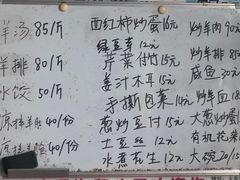 羊汤 85/斤
羊排 80/斤
水饺 50/斤
凉拌羊脸 40/份
凉拌羊 40/份
西红柿炒蛋 16元
绿豆芽 12元
芹菜付竹 15元
姜汁木耳 15元
手撕包菜 14元
葱炒豆付 15元
土豆丝 12元
水煮花生 12元
炒羊肉 90
炒羊排 85
咸鱼 30元
炒羊血 18
大葱炒蛋
有机花菜
大碗 20/15